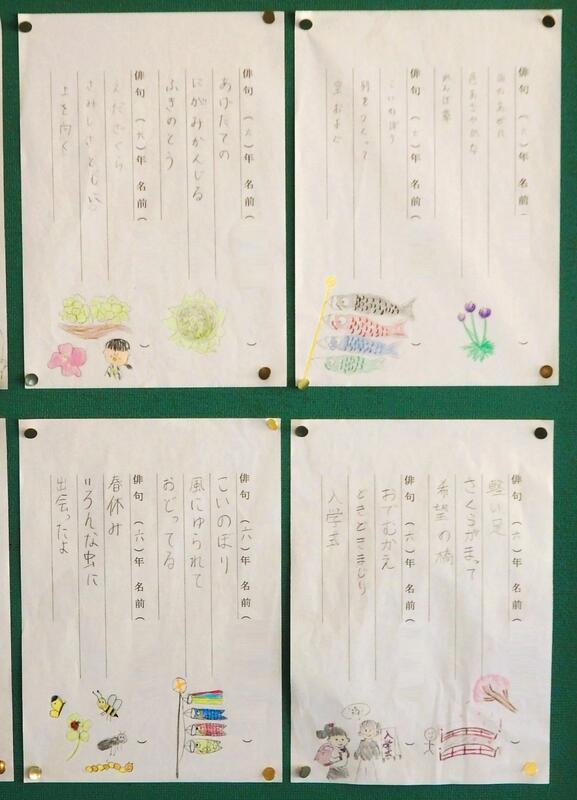 俳句（六）年 名前（ ）
あげたての
にがみかんじる
ふきのとう
俳句（六）年 名前（ ）
えだざくら
さみしさともに
上を向く
俳句（六）年 名前（ ）
色あざやかな
俳句（六）年 名前（ ）
こいのぼり
列をつくって
空およぐ
俳句（六）年 名前（ ）
こいのぼり
風にゆられて
おどってる
俳句（六）年 名前（ ）
春休み
いろんな虫に
出会ったよ
俳句（六）年 名前（ ）
軽い足
さくらがまって
希望の橋
俳句（六）年 名前（ ）
おでむかえ
どきどきまじり
入学式
入学式